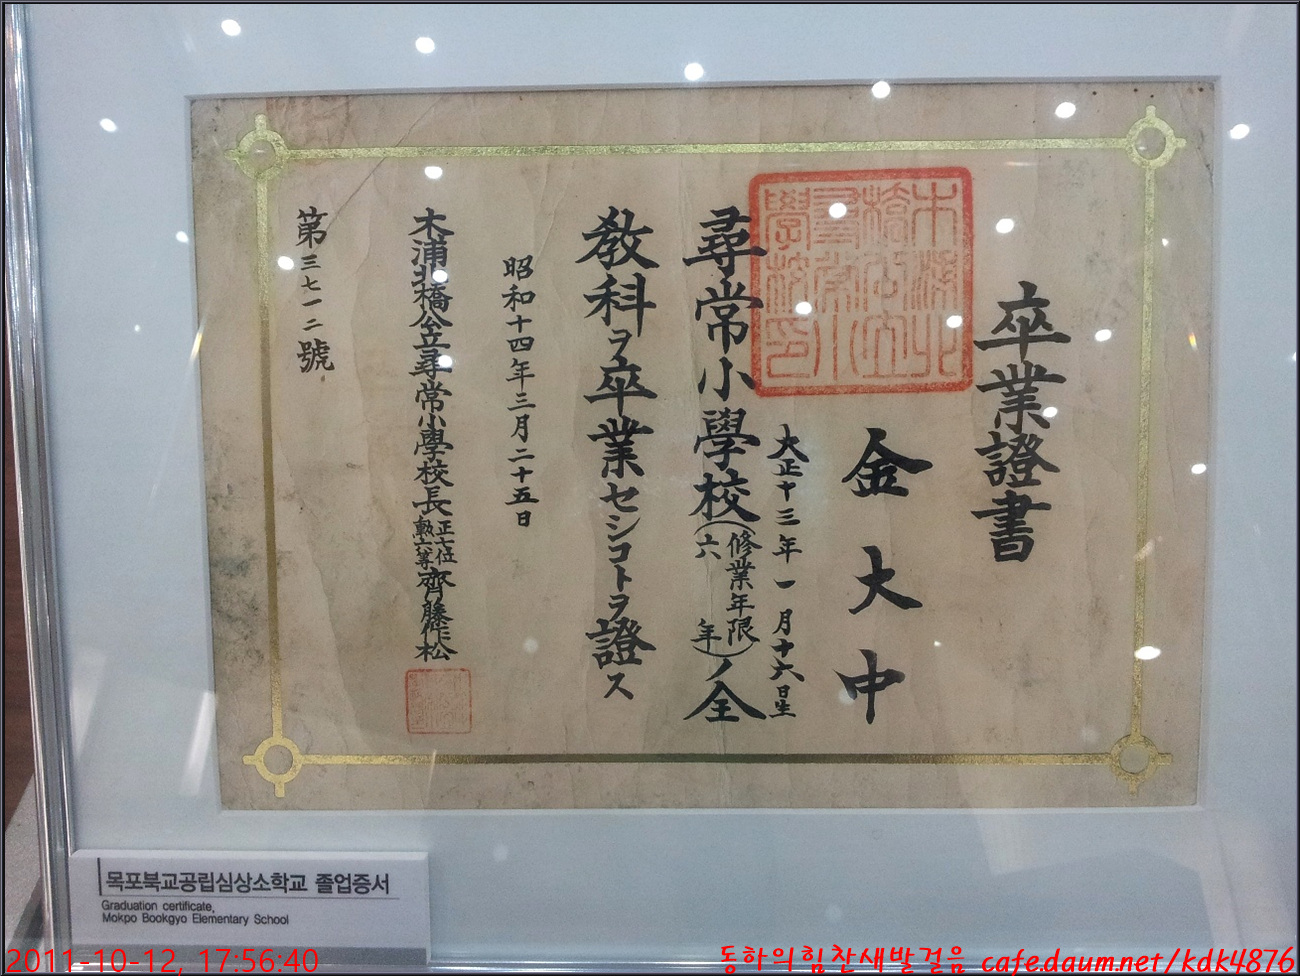 卒業證書
金大中
大正十三年一月十六日生
尋常小學校(修業年限六年)ノ全
敎科ヲ卒業セシコトヲ證ス
昭和十四年三月二十五日
木浦北橋公立尋常小學校長正七位勲六等齊藤作松
第三七一二號
木浦北
橋公立
尋常小
學校印
목포북교공립심상소학교 졸업증서
Graduation certificate,
Mokpo Bookgyo Elementary School
2011-10-12, 17:56:40
동하의힘찬새발걸음 cafe.daum.net/kdk4876